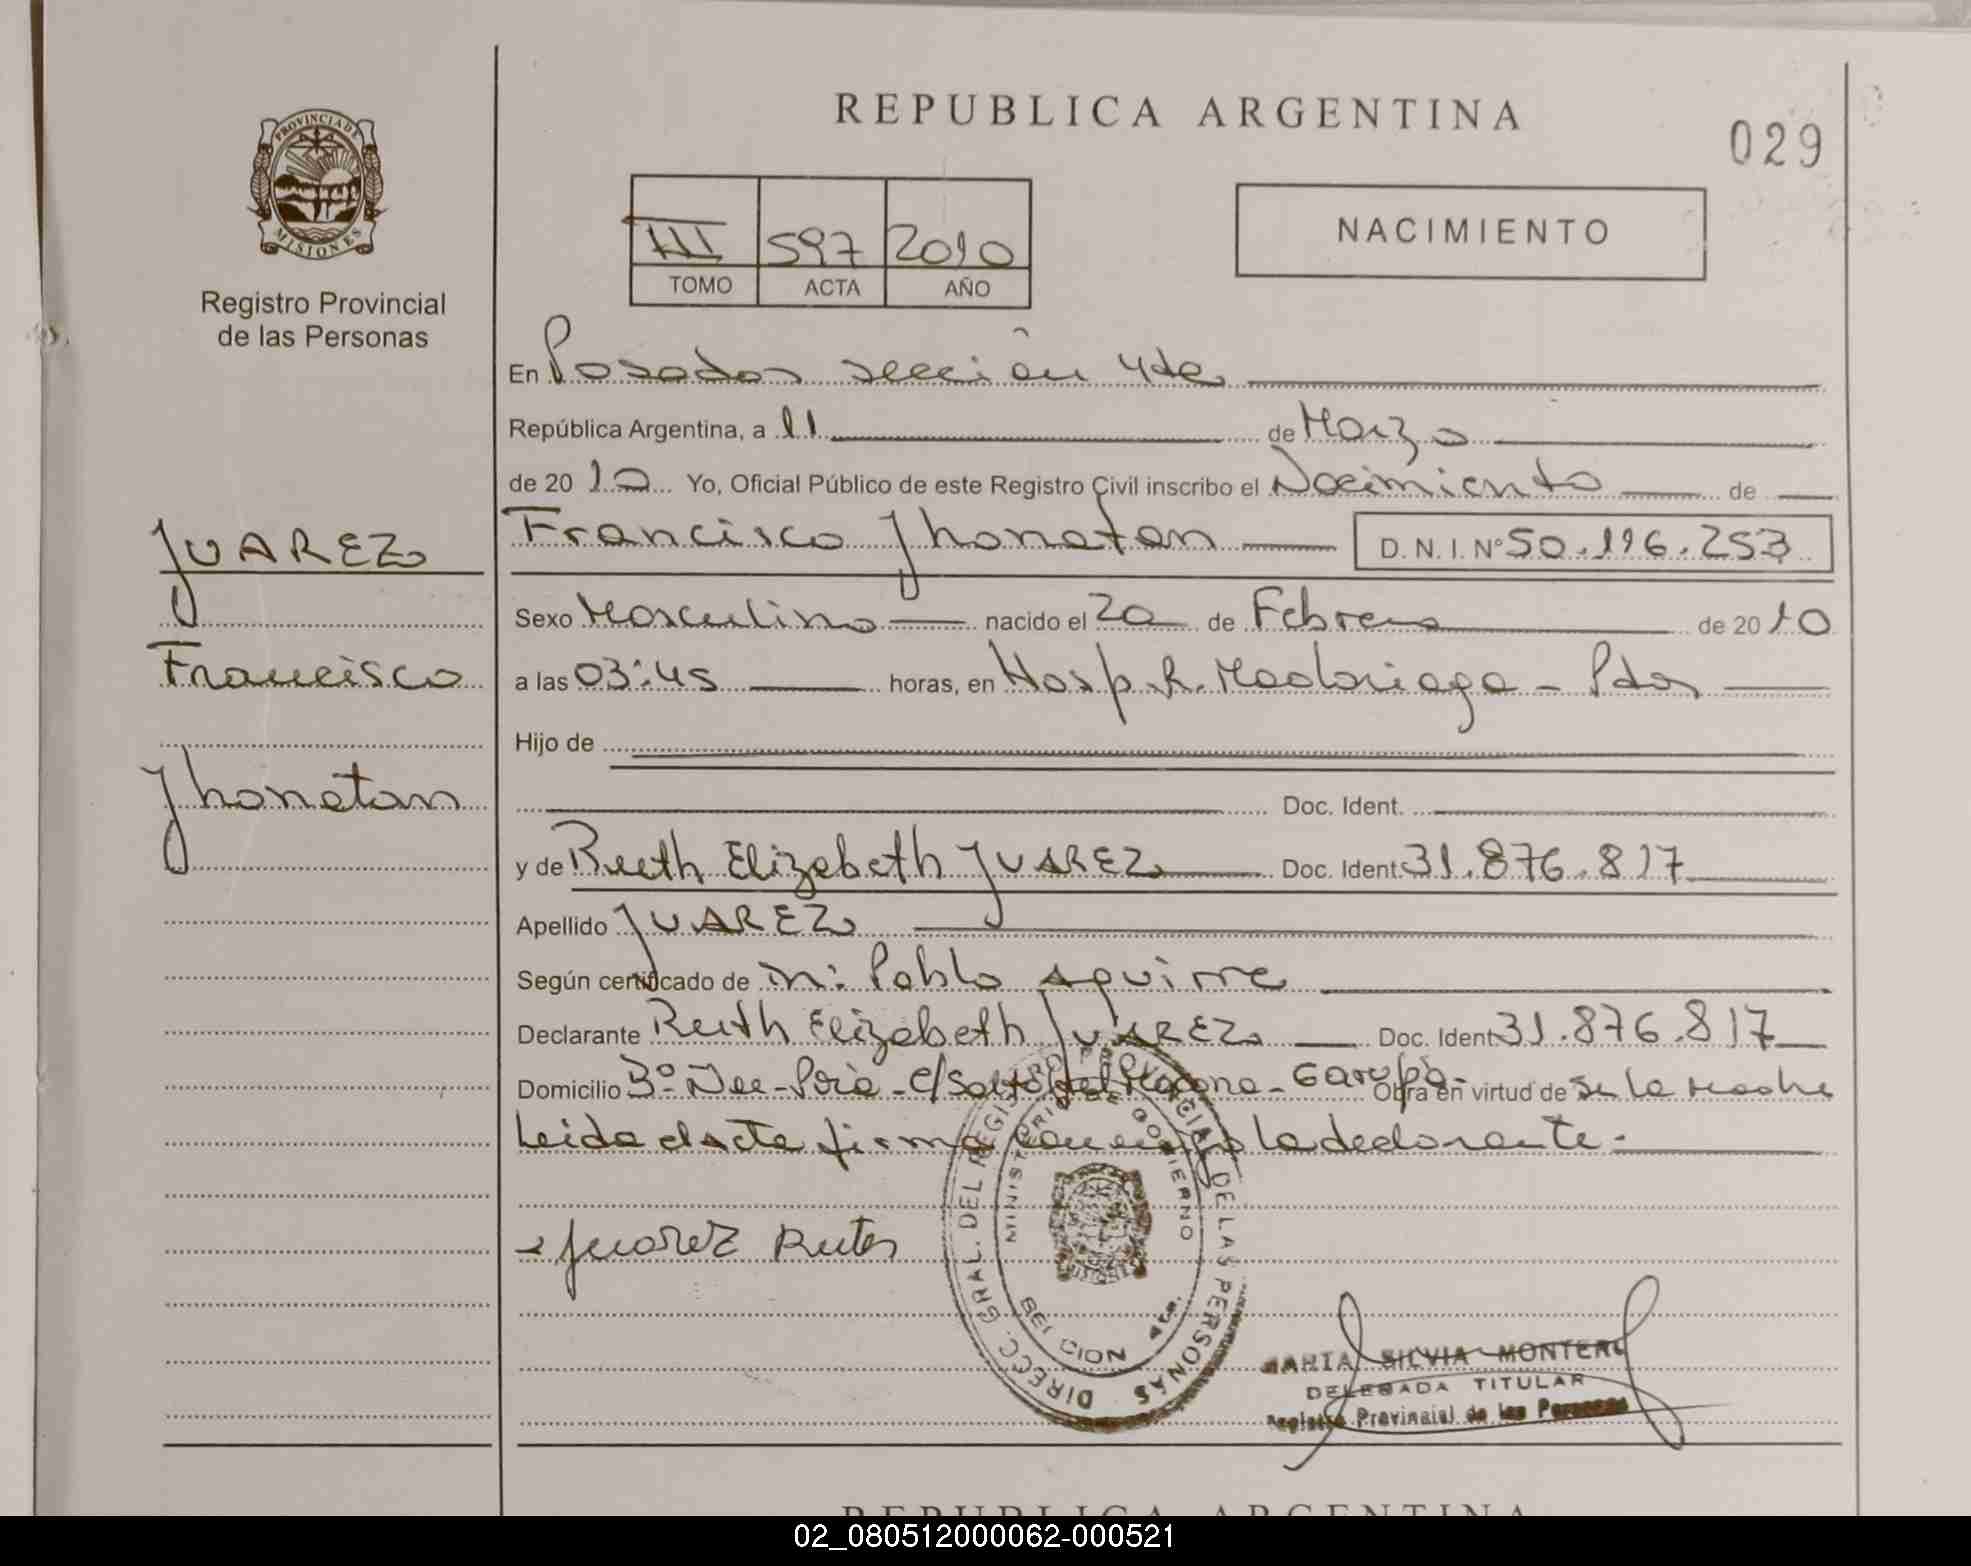 REPUBLICA ARGENTINA
029
PROVINCIA DE
MISIONES
Registro Provincial
de las Personas
III 597 2010
TOMO ACTA AÑO
NACIMIENTO
En Posadas sección 4ta
República Argentina, a 11 de Marzo
de 2010 Yo, Oficial Público de este Registro Civil inscribo el Nacimiento de
JUAREZ
Francisco Jhonatan D. N. I. Nº 50.196.253
Sexo Masculino nacido el 20 de Febrero de 2010
Francisco
a las 03:45 horas, en Hosp. R. Madariaga - Pdas
Hijo de
Jhonatan
Doc. Ident.
y de Ruth Elizabeth JUAREZ Doc. Ident. 31.876.817
Apellido JUAREZ
Según certificado de Pablo Aguirre
Declarante Ruth Elizabeth JUAREZ Doc. Ident. 31.876.817
Domicilio C/ Salto del Macona - Garupá - Obra en virtud de la Madre
Leida el acta firma la declarante.-
Juarez Ruth
DIRECC. GRAL. DEL REGISTRO PROVINCIAL DE LAS PERSONAS
MINISTERIO DE GOBIERNO
MARIA SILVIA MONTERO
DELEGADA TITULAR
Registro Provincial de las Personas
REPUBLICA ARGENTINA
02_080512000062-000521